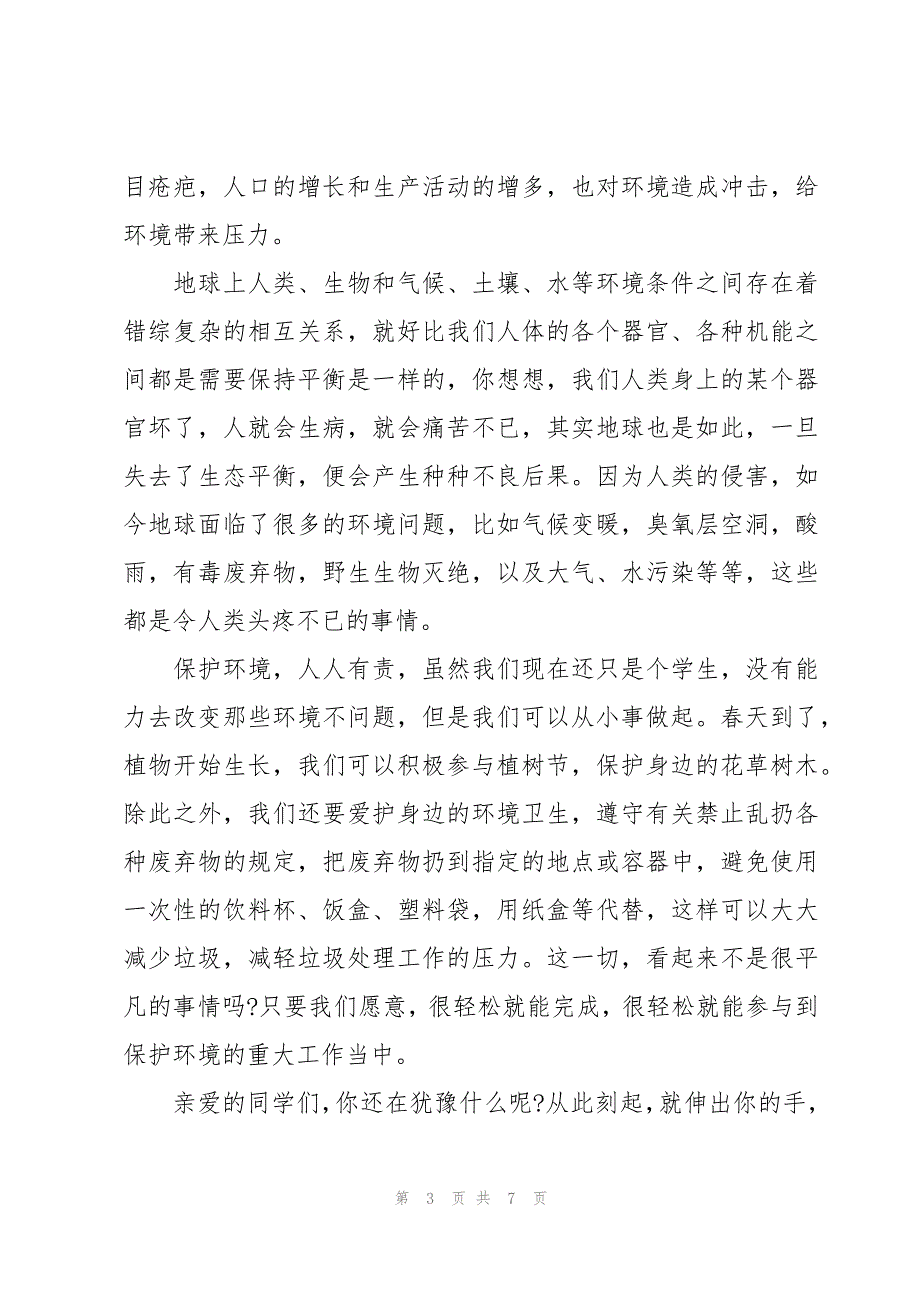 目疮疤，人口的增长和生产活动的增多，也对环境造成冲击，给
环境带来压力。
地球上人类、生物和气候、土壤、水等环境条件之间存在着
错综复杂的相互关系，就好比我们人体的各个器官、各种机能之
间都是需要保持平衡是一样的，你想想，我们人类身上的某个器
官坏了，人就会生病，就会痛苦不已，其实地球也是如此，一旦
失去了生态平衡，便会产生种种不良后果。因为人类的侵害，如
今地球面临了很多的环境问题，比如气候变暖，臭氧层空洞，酸
雨，有毒废弃物，野生生物灭绝，以及大气、水污染等等，这些
都是令人类头疼不已的事情。
保护环境，人人有责，虽然我们现在还只是个学生，没有能
力去改变那些环境不问题，但是我们可以从小事做起。春天到了，
植物开始生长，我们可以积极参与植树节，保护身边的花草树木。
除此之外，我们还要爱护身边的环境卫生，遵守有关禁止乱扔各
种废弃物的规定，把废弃物扔到指定的地点或容器中，避免使用
一次性的饮料杯、饭盒、塑料袋，用纸盒等代替，这样可以大大
减少垃圾，减轻垃圾处理工作的压力。这一切，看起来不是很平
凡的事情吗?只要我们愿意，很轻松就能完成，很轻松就能参与到
保护环境的重大工作当中。
亲爱的同学们，你还在犹豫什么呢?从此刻起，就伸出你的手，
第 3 页 共 7 页